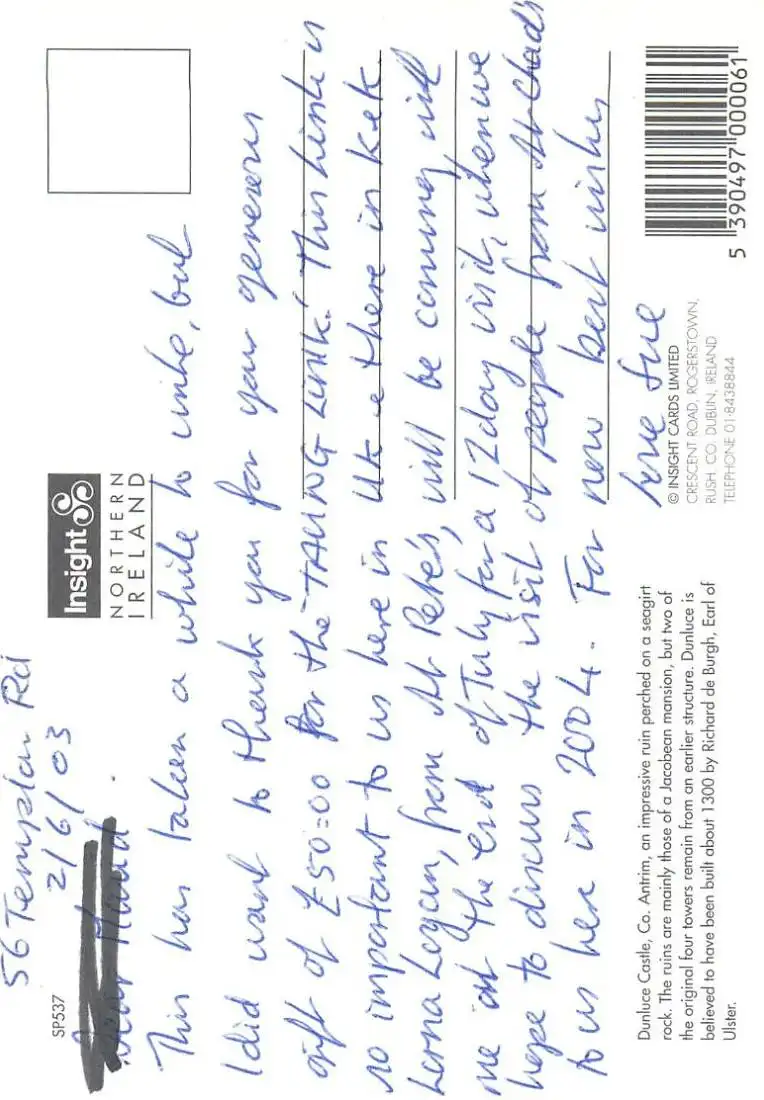 56 Templar Rd
2/6/03
SP537
Insight
NORTHERN
IRELAND
Dear
This has taken a while to write, but
I did want to thank you for your generous
gift of £50=00 for the LINK! This link is
so important to us here in UK & there in
Lorna Logan, from St Pete's, will be coming with
me at the end of July for a 12 day visit, when we
hope to discuss the visit of people from St Chads
to us here in 2004. For now best wishes
love Sue
Dunluce Castle, Co. Antrim, an impressive ruin perched on a seagirt
rock. The ruins are mainly those of a Jacobean mansion, but two of
the original four towers remain from an earlier structure. Dunluce is
believed to have been built about 1300 by Richard de Burgh, Earl of
Ulster.
© INSIGHT CARDS LIMITED
CRESCENT ROAD, ROGERSTOWN,
RUSH, CO. DUBLIN, IRELAND
TELEPHONE 01-8438844
5 390497 000061